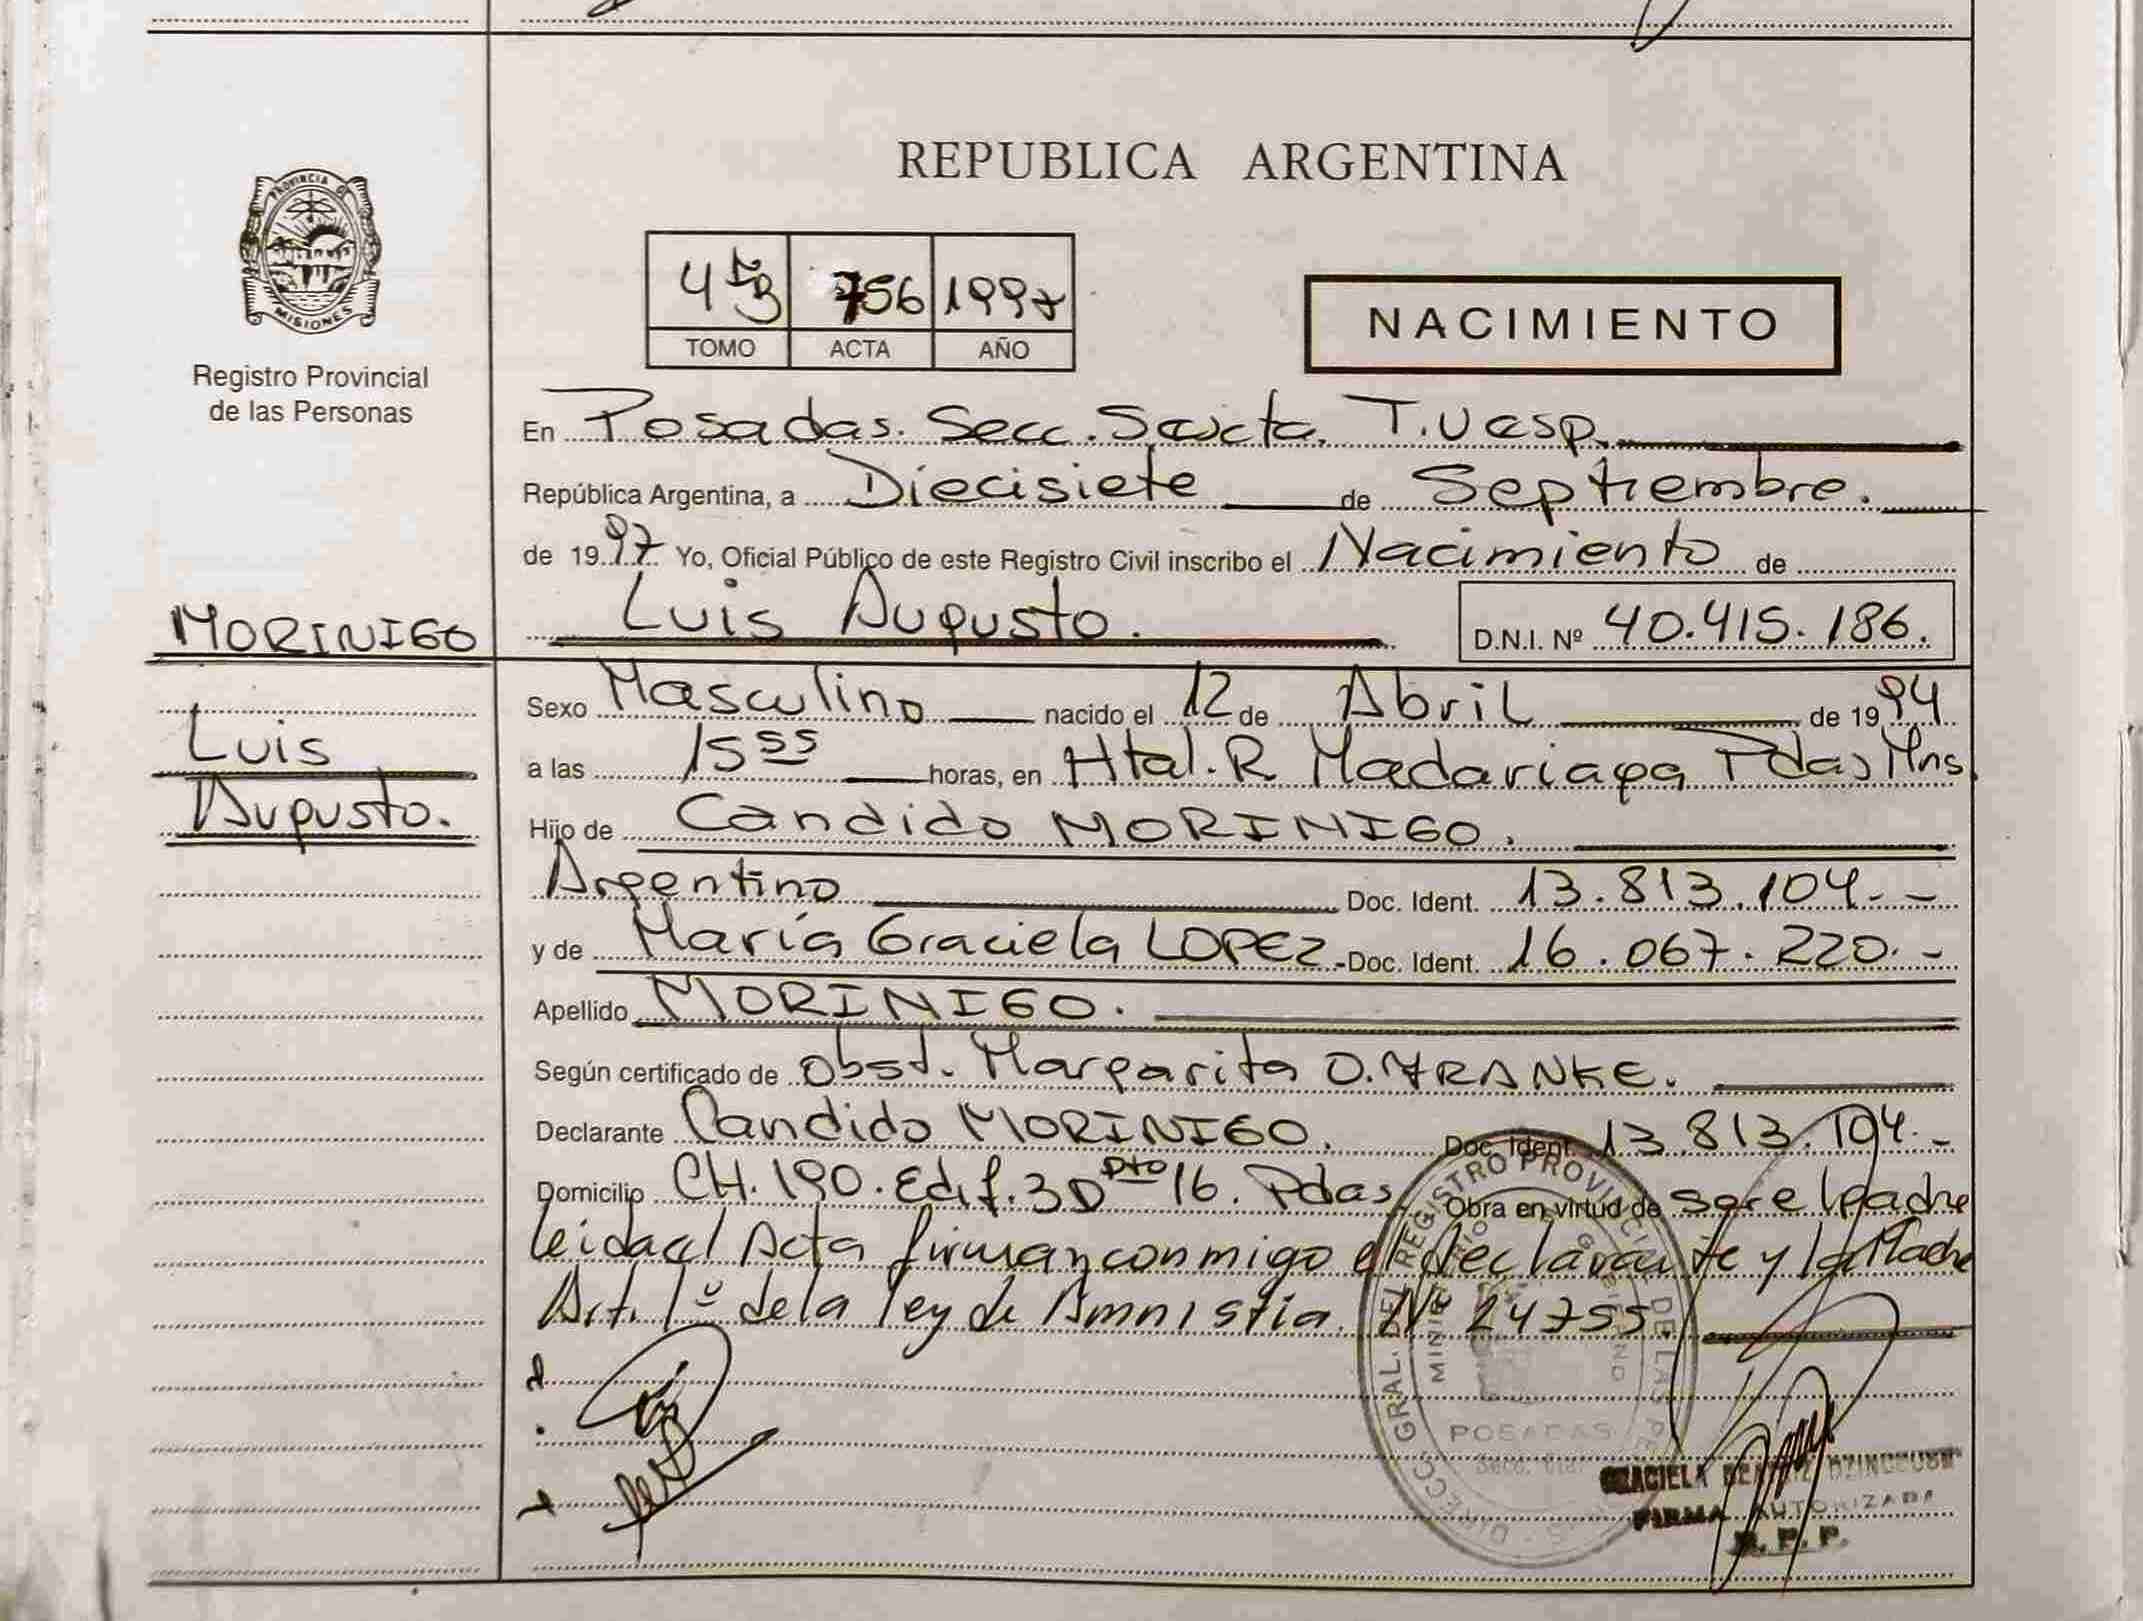 PROVINCIA DE
MISIONES
Registro Provincial
de las Personas
MORINIGO
Luis
Augusto.
REPUBLICA ARGENTINA
756 1997
TOMO ACTA AÑO
NACIMIENTO
En Posadas. Secc. Sexta. T. Vesp.
República Argentina, a Diecisiete de Septiembre.
de 1997 Yo, Oficial Público de este Registro Civil inscribo el Nacimiento de
Luis Augusto. D.N.I. Nº 40.415.186.
Sexo Masculino nacido el 12 de Abril de 1994
a las 15 55 horas, en Htal. R. Madariaga Pdas Mns.
Hijo de Candido MORINIGO.
Argentino Doc. Ident. 13.813.104.-
y de María Graciela LOPEZ - Doc. Ident. 16.067.220.-
Apellido MORINIGO.
Según certificado de Obst. Margarita O. FRANKE.
Declarante Candido MORINIGO. Doc. Ident. 13.813.104.-
Domicilio CH. 190. Edif. 3D Dto 16. Pdas Obra en virtud de ser el padre
leida el Acta firman conmigo el declarante y la Madre
Art. 1º de la ley de Amnistia Nº 24755.
DIRECC. GRAL. DEL REGISTRO PROVINCIAL DE LAS
POSADAS
GRACIELA
FIRMA AUTORIZADA
R. P. P.